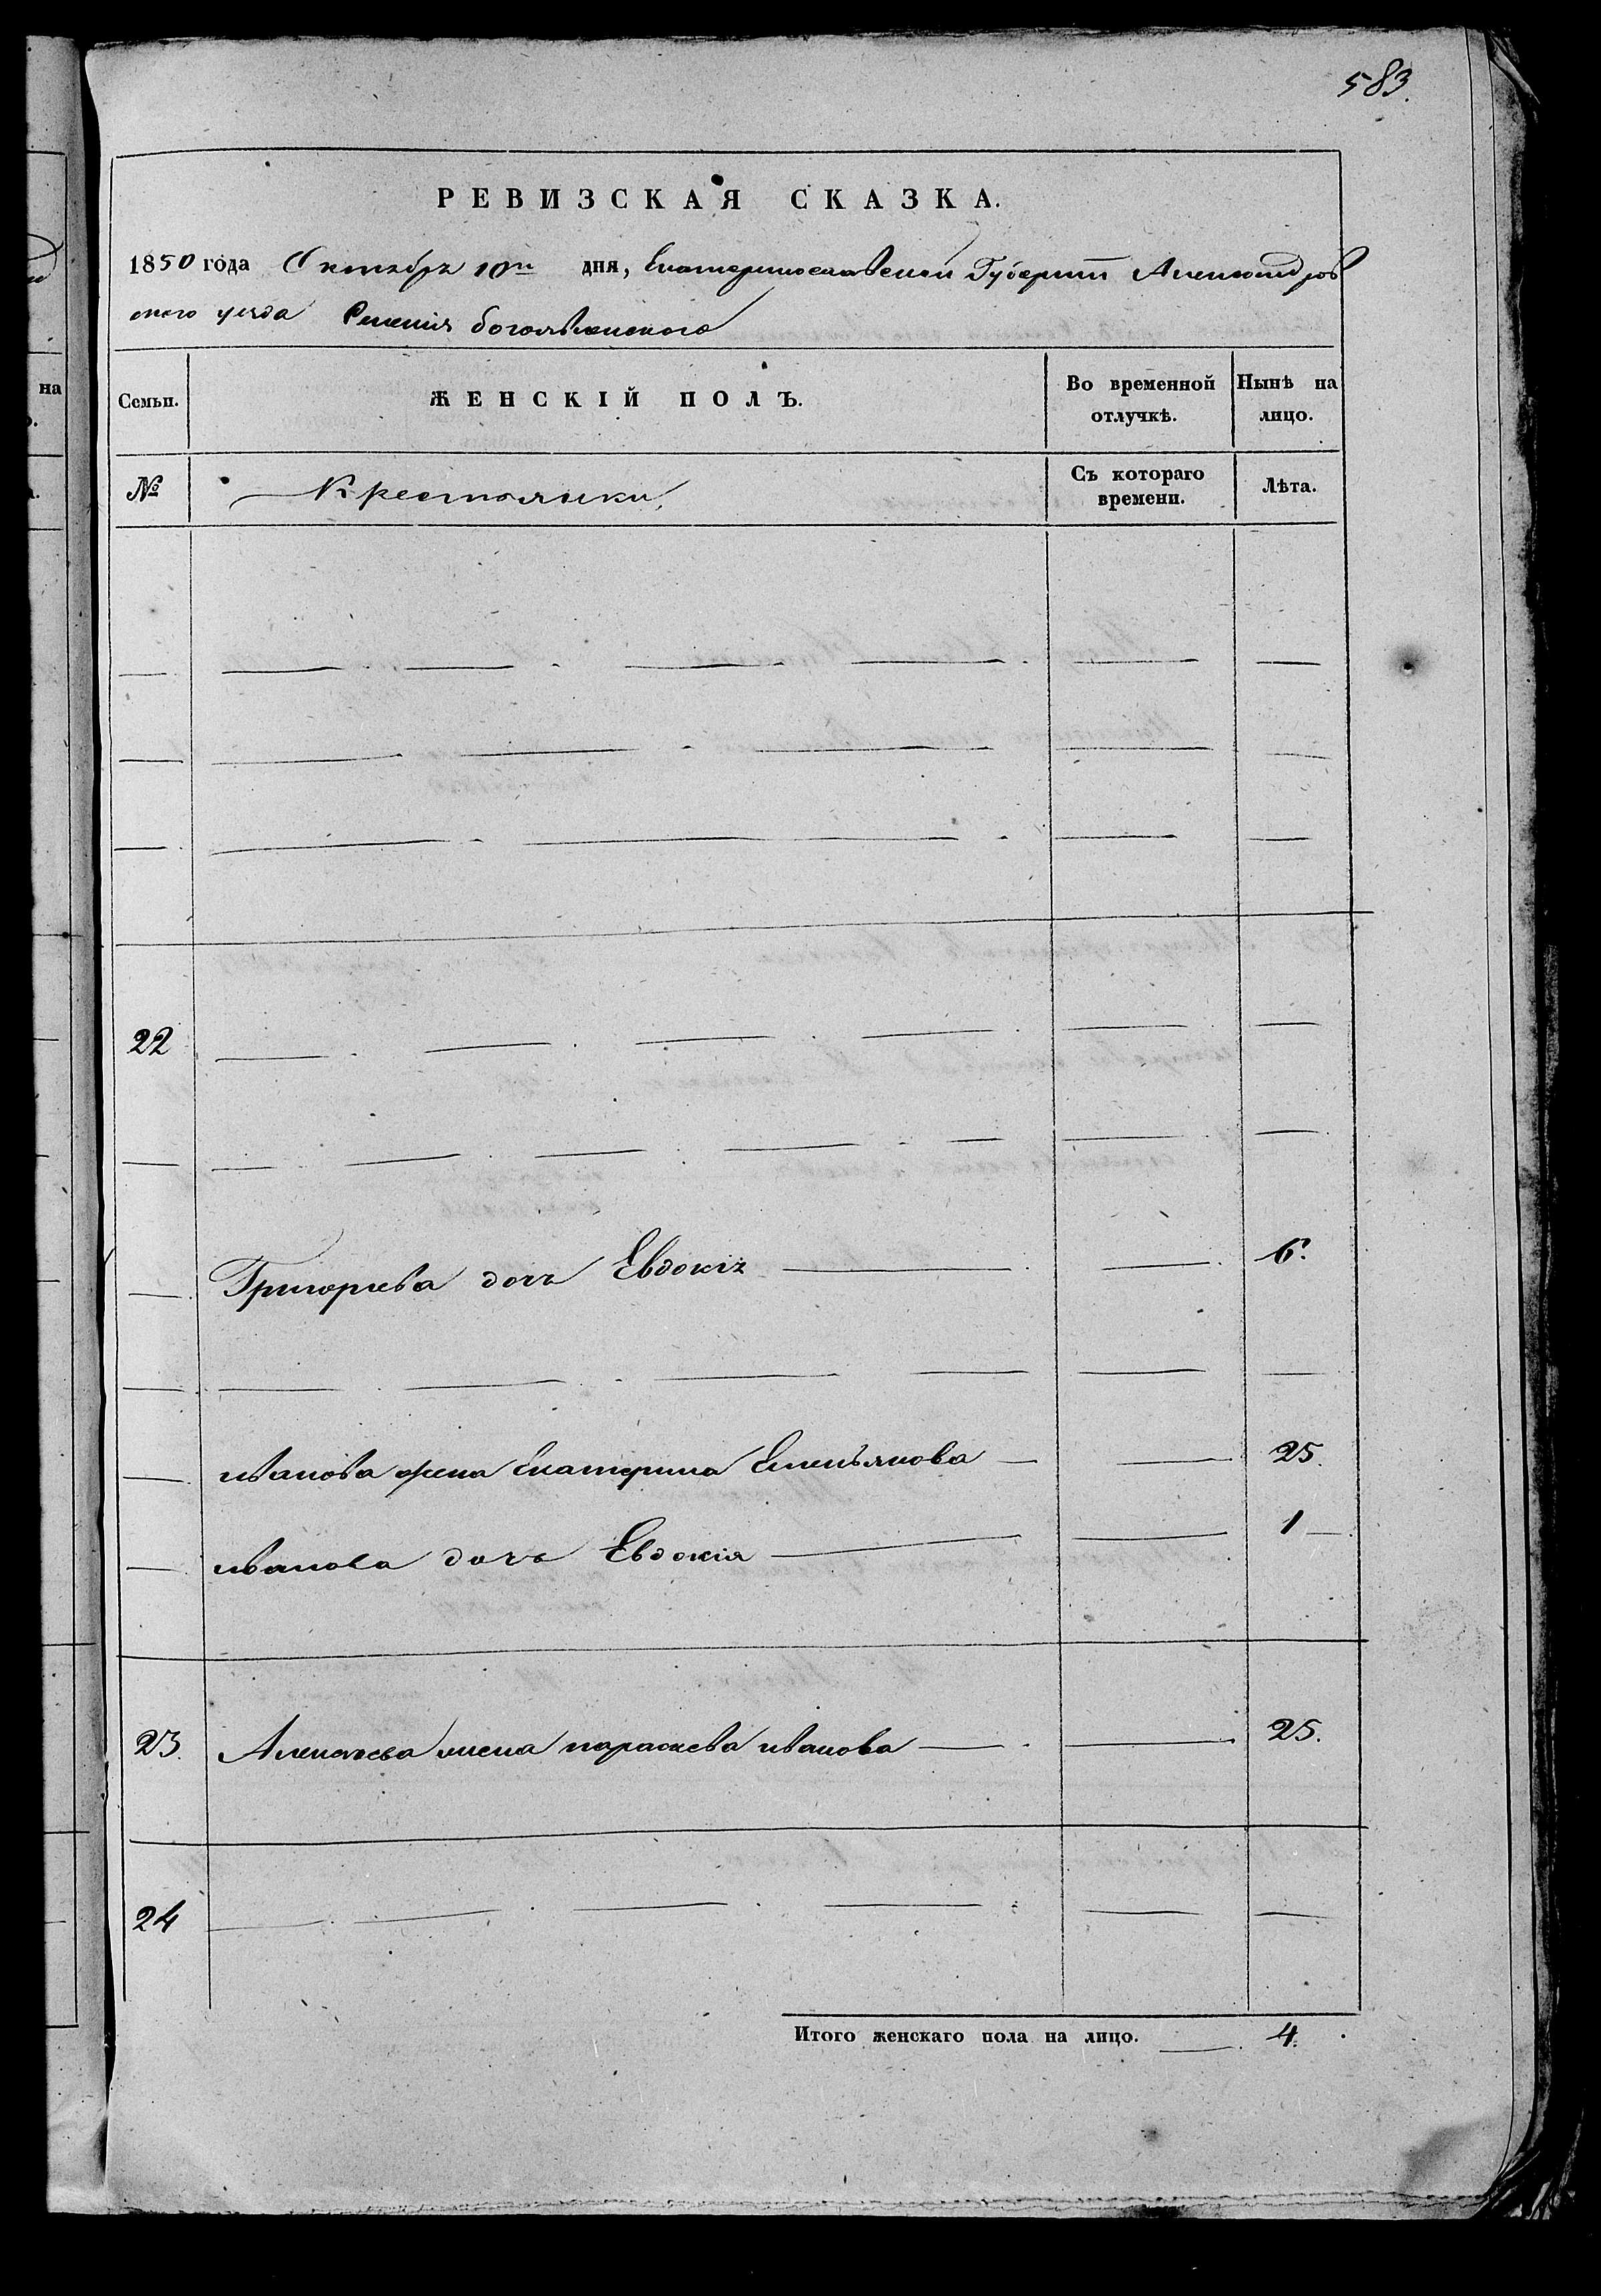 583.
РЕВИЗСКАЯ СКАЗКА.
1850 года Октября 10го дня, Екатеринославской Губернiи Александров
ского уезда Селенiя богоявленского
Семьи. ЖЕНСКIЙ ПОЛЪ. Во временной отлучкѣ. Нынѣ на лицо.
№ Крестьянки, Съ котораго времени. Лѣта.
22
Григорьева дочь Евдокiя 6.
иванова жена Екатерина Емельянова 25.
иванова дочь Евдокiя 1
23. Алексѣева жена параскева иванова 25.
24
Итого женскаго пола на лицо. 4.
на